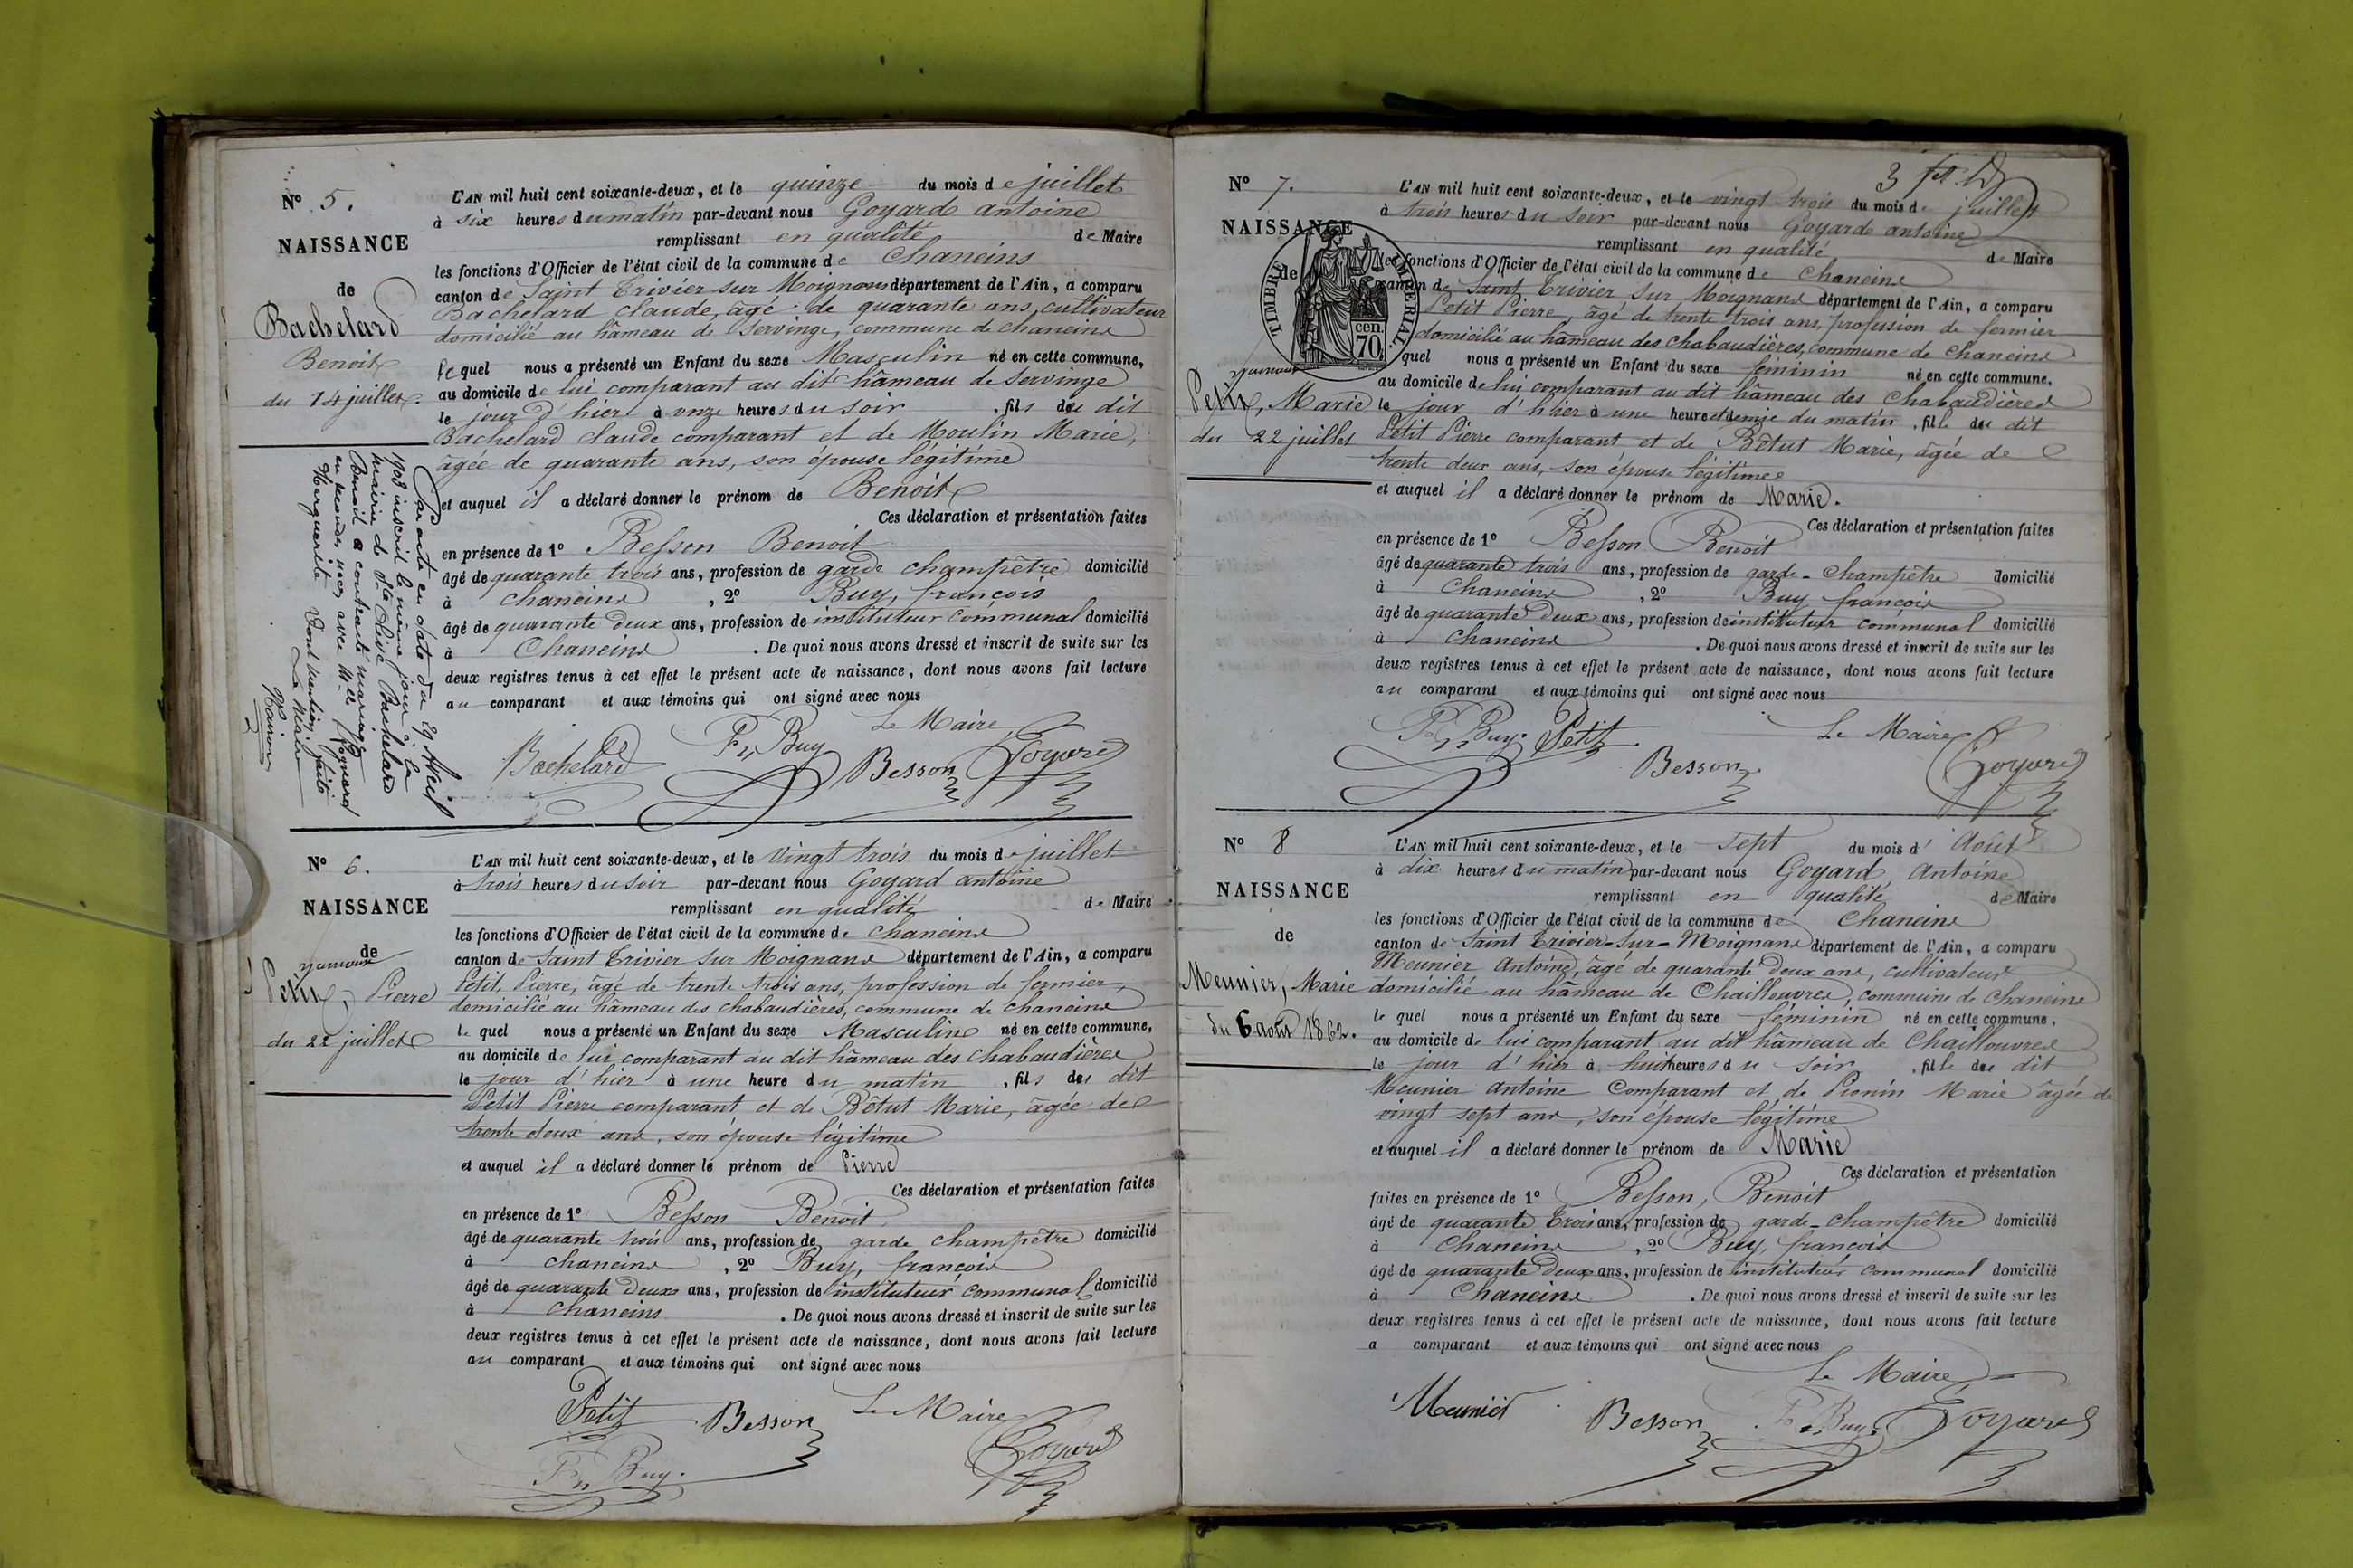 N° 5.
NAISSANCE
de
Bachelard
Benoit
du 14 juillet.
L'AN mil huit cent soixante-deux, et le quinze du mois de juillet
à six heures du matin par-devant nous Goyard antoine
remplissant en qualité de Maire
les fonctions d'Officier de l'état civil de la commune de Chaneins
canton de Saint Trivier sur Moignans département de l'Ain, a comparu
Bachelard claude, âgé de quarante ans, cultivateur
domicilié au hâmeau de Servinge, commune de chaneins
lequel nous a présenté un Enfant du sexe Masculin né en cette commune,
au domicile de lui comparant au dit hâmeau de Servinge
le jour d'hier à onze heures du soir, fils du dit
Bachelard claude comparant et de Moulin Marie,
âgée de quarante ans, son épouse légitime
et auquel il a déclaré donner le prénom de Benoit
Ces déclaration et présentation faites
en présence de 1° Besson Benoit
âgé de quarante trois ans, profession de garde champêtre domicilié
à chaneins, 2° Buy, françois
âgé de quarante deux ans, profession de instituteur communal domicilié
à Chaneins. De quoi nous avons dressé et inscrit de suite sur les
deux registres tenus à cet effet le présent acte de naissance, dont nous avons fait lecture
au comparant et aux témoins qui ont signé avec nous
Le Maire
Bachelard Fs Buy Besson Goyard
Par acte en date du 29 Avril
1908 inscrit le même jour à la
mairie de Ste Olive Bachelard
Benoit a contracté mariage
en secondes noces avec Mlle
Marguerite Dont mention faite
Le Maire
N° 6.
NAISSANCE
de
jumeaux
Petit, Pierre
du 22 juillet
L'AN mil huit cent soixante-deux, et le vingt trois du mois de juillet
à trois heures du soir par-devant nous Goyard antoine
remplissant en qualité de Maire
les fonctions d'Officier de l'état civil de la commune de Chaneins
canton de Saint Trivier sur Moignans département de l'Ain, a comparu
Petit, Pierre, âgé de trente trois ans, profession de fermier,
domicilié au hâmeau des chabaudières, commune de chaneins
le quel nous a présenté un Enfant du sexe Masculin né en cette commune,
au domicile de lui comparant au dit hâmeau des chabaudières
le jour d'hier à une heure du matin, fils du dit
Petit Pierre comparant et de Bêtut Marie, âgée de
trente deux ans, son épouse légitime
et auquel il a déclaré donner le prénom de Pierre
Ces déclaration et présentation faites
en présence de 1° Besson Benoit
âgé de quarante trois ans, profession de garde champêtre domicilié
à chaneins, 2° Buy, françois
âgé de quarante deux ans, profession de instituteur communal domicilié
à chaneins. De quoi nous avons dressé et inscrit de suite sur les
deux registres tenus à cet effet le présent acte de naissance, dont nous avons fait lecture
au comparant et aux témoins qui ont signé avec nous
Petit Besson Le Maire
Fs Buy. Goyard
3
N° 7.
NAISSANCE
de
TIMBRE IMPERIAL
cen.
70
jumeaux
Petit, Marie
du 22 juillet
L'AN mil huit cent soixante-deux, et le vingt trois du mois de juillet
à trois heures du soir par-devant nous Goyard antoine
remplissant en qualité de Maire
les fonctions d'Officier de l'état civil de la commune de Chaneins
canton de Saint Trivier sur Moignans département de l'Ain, a comparu
Petit Pierre, âgé de trente trois ans, profession de fermier
domicilié au hâmeau des chabaudières, commune de chaneins
quel nous a présenté un Enfant du sexe féminin né en cette commune,
au domicile de lui comparant au dit hâmeau des Chabaudières
le jour d'hier à une heure et demie du matin, fille du dit
Petit Pierre comparant et de Bêtut Marie, âgée de
trente deux ans, son épouse légitime
et auquel il a déclaré donner le prénom de Marie.
Ces déclaration et présentation faites
en présence de 1° Besson Benoit
âgé de quarante trois ans, profession de garde-champêtre domicilié
à Chaneins, 2° Buy françois
âgé de quarante deux ans, profession de instituteur communal domicilié
à Chaneins. De quoi nous avons dressé et inscrit de suite sur les
deux registres tenus à cet effet le présent acte de naissance, dont nous avons fait lecture
au comparant et aux témoins qui ont signé avec nous
Fs Buy. Petit Le Maire
Besson Goyard
N° 8
NAISSANCE
de
Meunier, Marie
du 6 août 1862.
L'AN mil huit cent soixante-deux, et le sept du mois d'Août
à dix heures du matin par-devant nous Goyard, Antoine
remplissant en qualité de Maire
les fonctions d'Officier de l'état civil de la commune de Chaneins
canton de Saint Trivier-sur-Moignans département de l'Ain, a comparu
Meunier Antoine, âgé de quarante deux ans, cultivateur
domicilié au hâmeau de Chaillouvres, commune de Chaneins
le quel nous a présenté un Enfant du sexe féminin né en cette commune,
au domicile de lui comparant au dit hâmeau de Chaillouvres
le jour d'hier à huit heures du soir, fille du dit
Meunier Antoine Comparant et de Pionin Marie âgée de
vingt sept ans, son épouse légitime
et auquel il a déclaré donner le prénom de Marie
Ces déclaration et présentation
faites en présence de 1° Besson, Benoit
âgé de quarante trois ans, profession de garde-champêtre domicilié
à Chaneins, 2° Buy, françois
âgé de quarante deux ans, profession de instituteur communal domicilié
à Chaneins. De quoi nous avons dressé et inscrit de suite sur les
deux registres tenus à cet effet le présent acte de naissance, dont nous avons fait lecture
a comparant et aux témoins qui ont signé avec nous
Le Maire
Meunier Besson Fs Buy. Goyard